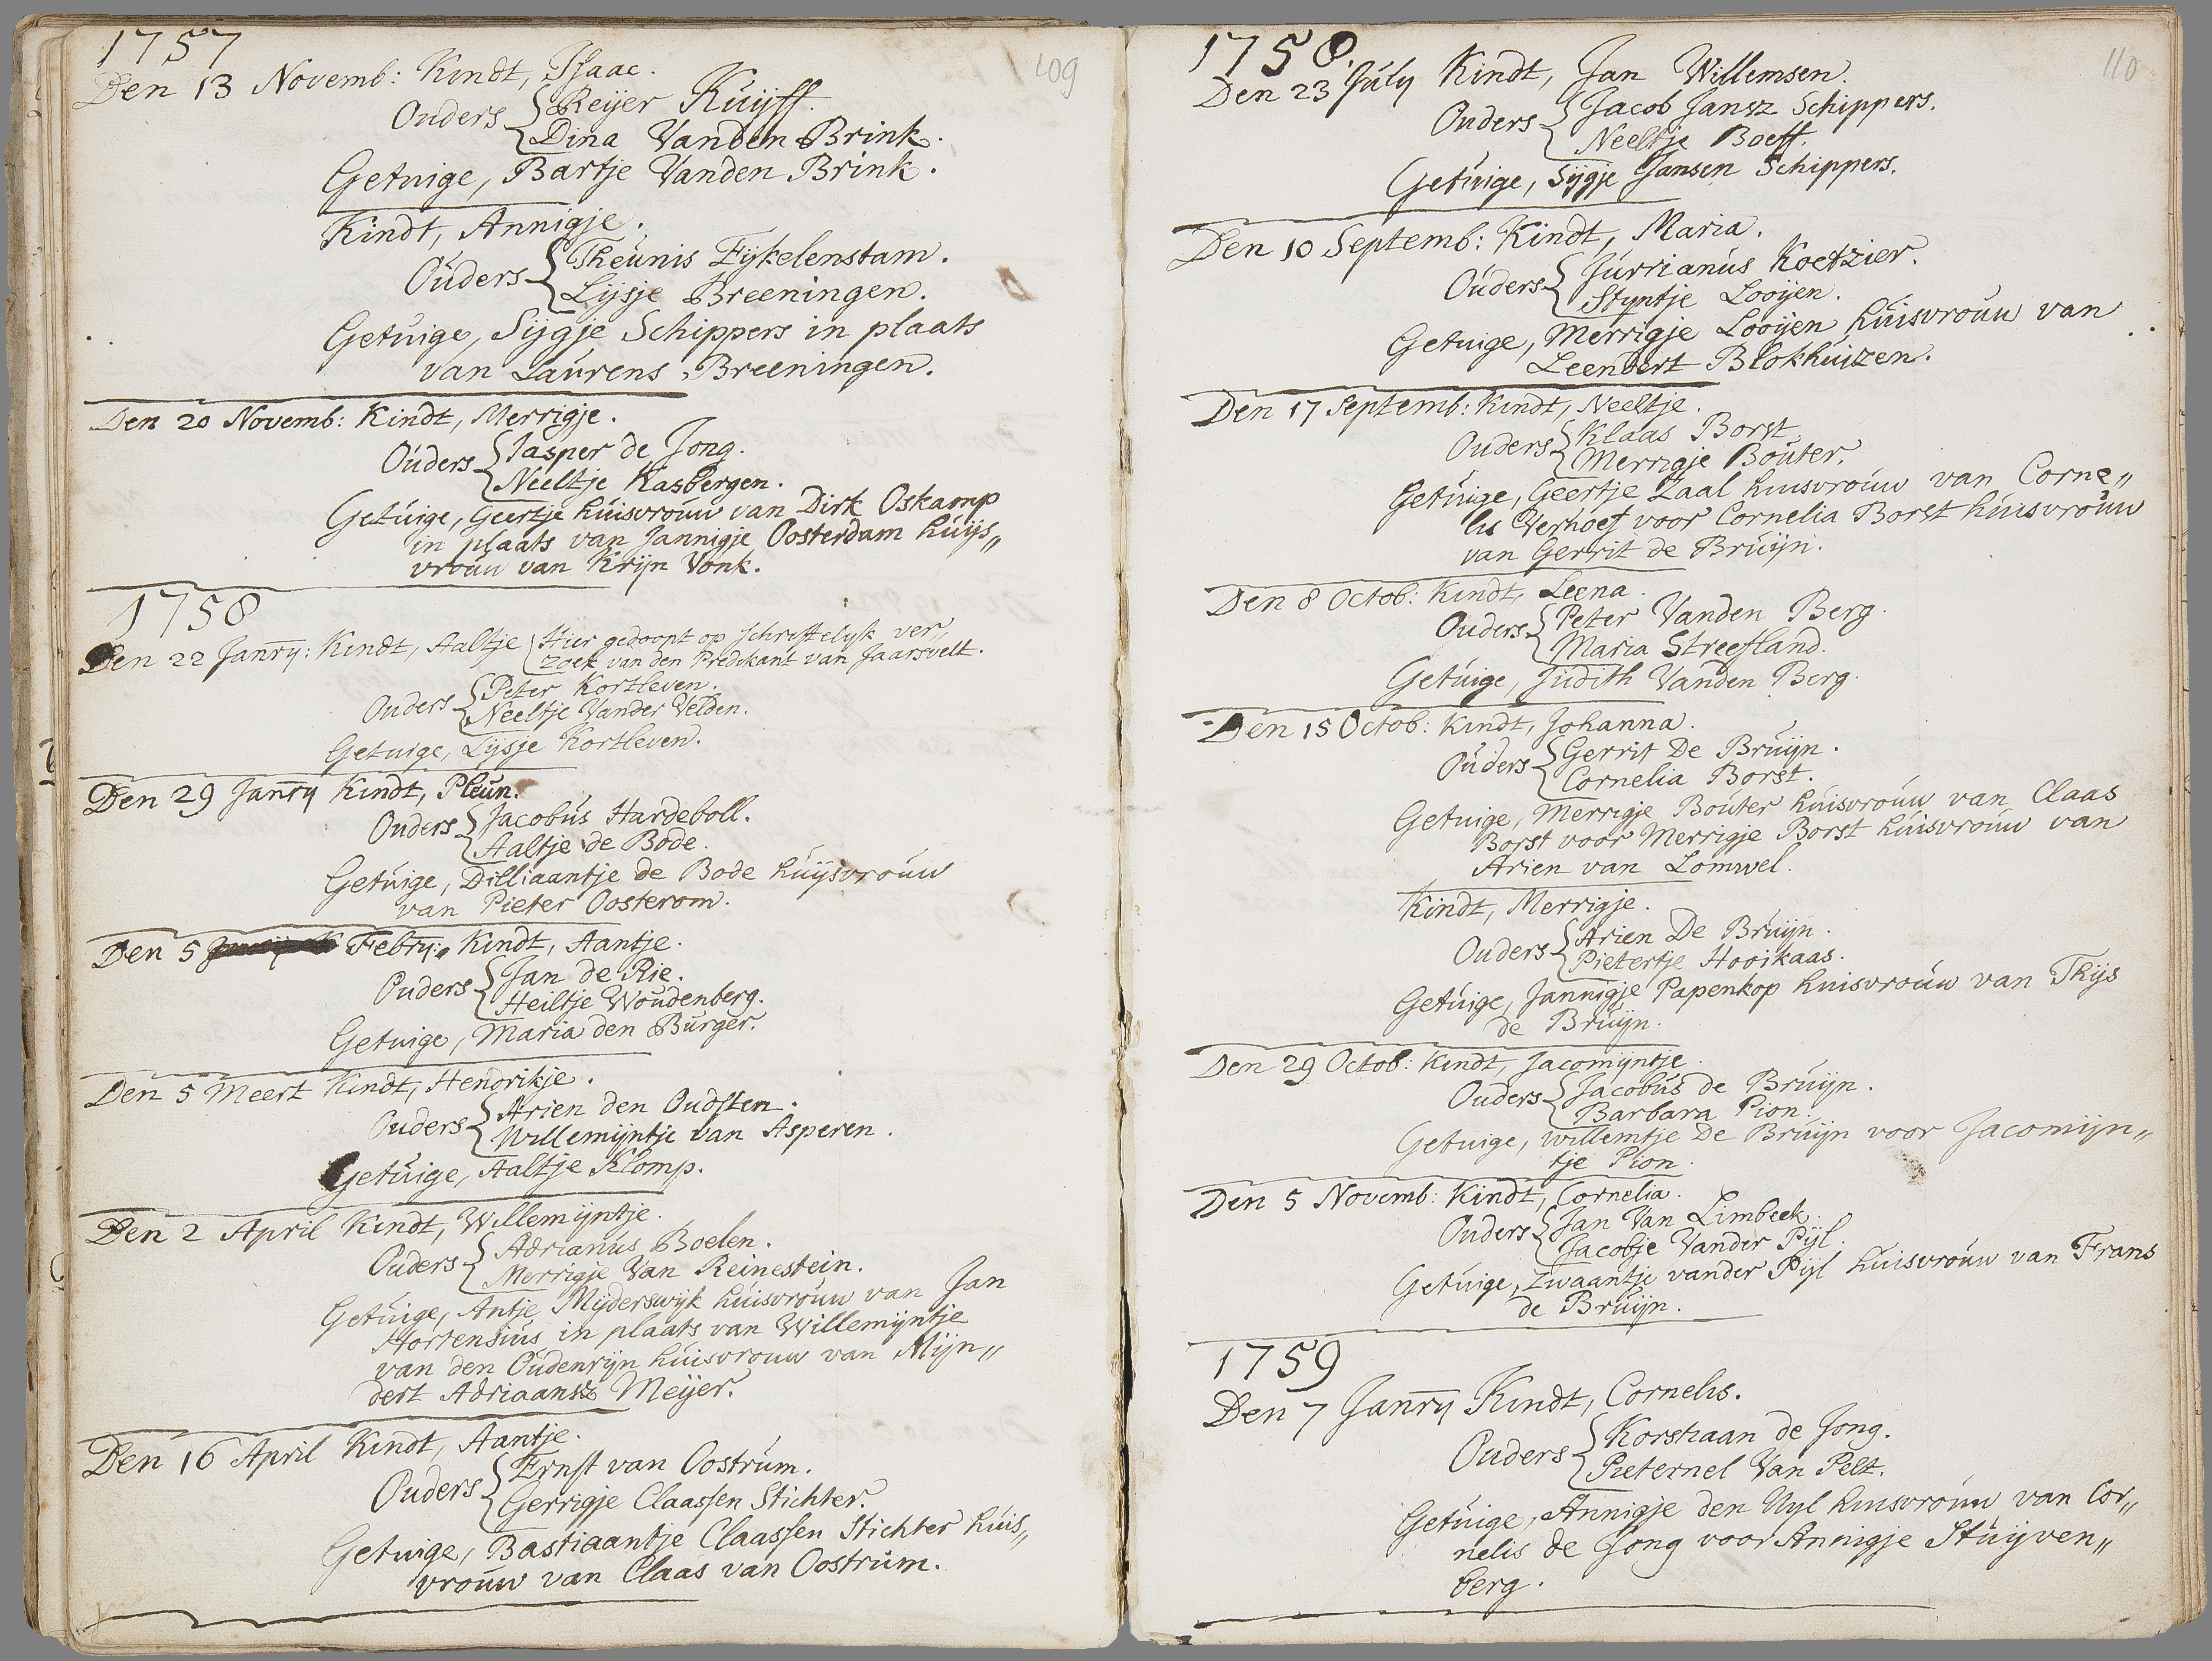 109
1757
Den 13 Novemb: Kindt, Isaac.
Ouders { Reijer Kuijff.
Dina Vanden Brink.
Getuige, Bartje Vanden Brink.
Kindt, Annigje.
Ouders { Theunis Eijkelenstam.
Lijsje Breeningen.
Getuige, Sijgje Schippers in plaats
van Laurens Breeningen.
Den 20 Novemb: Kindt, Merrigje.
Ouders { Jasper de Jong.
Neeltje Kasbergen.
Getuige, Geertje huisvrouw van Dirk Oskamp
in plaats van Jannigje Oosterdam huijs„
vrouw van Krijn Vonk.
1758
Den 22 Janry: Kindt, Aaltje { Hier gedoopt op schriftelijk ver„
zoek van den Predikant van Jaarsvelt.
Ouders { Peter Kortleven.
Neeltje Vander Velden.
Getuige, Lijsje Kortleven.
Den 29 Janry Kindt, Pleun.
Ouders { Jacobus Hardeboll.
Aaltje de Bode.
Getuige, Dilliaantje de Bode huijsvrouw
van Pieter Oosterom.
Den 5 Febry: Kindt, Aantje.
Ouders { Jan de Rie.
Heiltje Woudenberg.
Getuige, Maria den Burger.
Den 5 Meert Kindt, Hendrikje.
Ouders { Arien den Oudsten.
Willemijntje van Asperen.
Getuige, Aaltje Klomp.
Den 2 April Kindt, Willemijntje.
Ouders { Adrianus Boelen.
Merrigje Van Reinestein.
Getuige, Antje Mijderswijk huisvrouw van Jan
Hortensius in plaats van Willemijntje
van den Oudenrijn huisvrouw van Mijn„
dert Adriaansz Meijer.
Den 16 April Kindt, Aantje.
Ouders { Ernst van Oostrum.
Gerrigje Claassen Stichter.
Getuige, Bastiaantje Claassen Stichter huis„
vrouw van Claas van Oostrum.
110
1758.
Den 23 July Kindt, Jan Willemsen.
Ouders { Jacob Jansz Schippers.
Neeltje Boeff.
Getuige, Sijgje Jansen Schippers.
Den 10 Septemb: Kindt, Maria.
Ouders { Jurrianus Koetzier.
Styntje Looijen.
Getuige, Merrigje Looijen huisvrouw van
Leendert Blokhuizen.
Den 17 Septemb: Kindt, Neeltje.
Ouders { Klaas Borst
Merrigje Bouter.
Getuige, Geertje Zaal huisvrouw van Corne„
lis Verhoef voor Cornelia Borst huisvrouw
van Gerrit de Bruijn.
Den 8 Octob: Kindt, Leena.
Ouders { Peter Vanden Berg.
Maria Streefland.
Getuige, Judith Vanden Berg.
Den 15 Octob: Kindt, Johanna.
Ouders { Gerrit De Bruijn.
Cornelia Borst.
Getuige, Merrigje Bouter huisvrouw van Claas
Borst voor Merrigje Borst huisvrouw van
Arien van Lomwel.
Kindt, Merrigje.
Ouders { Arien De Bruijn.
Pietertje Hooikaas.
Getuige, Jannigje Papenkop huisvrouw van Thijs
de Bruijn.
Den 29 Octob: Kindt, Jacomijntje.
Ouders { Jacobus de Bruijn.
Barbara Pion.
Getuige, Willemtje De Bruijn voor Jacomijn„
tje Pion.
Den 5 Novemb: Kindt, Cornelia.
Ouders { Jan Van Limbeek.
Jacobje Vander Pijl.
Getuige, Zwaantje vander Pijl huisvrouw van Frans
de Bruijn.
1759
Den 7 Janry Kindt, Cornelis.
Ouders { Korstiaan de Jong.
Pieternel Van Pelt.
Getuige, Annigje den Uyl huisvrouw van Cor„
nelis de Jong voor Annigje Stuijven„
berg.